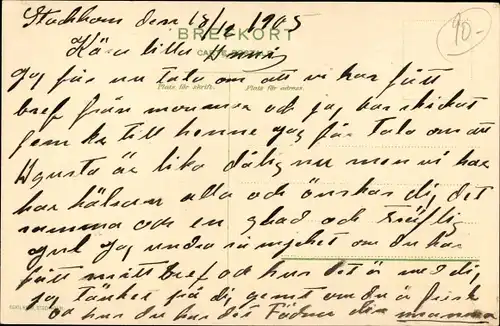 Stockhom den 18/12 1905
BREFKORT
CARTE POSTALE
Kära lilla Anni
90-
Jag får nu tala om att vi har fått
Plats för skrift. Plats för adress.
bref från mamma och jag har skickat
fem kr till henne jag får tala om att
Agusta är lika dålig nu men vi har
har hälsan alla och önskar dig det
samma och en glad och kräftig
gul jag undra så mycket om du har
fått mitt bref och hur det är med dig
jag tänker på dig gemt om du är frisk
och hur du har det